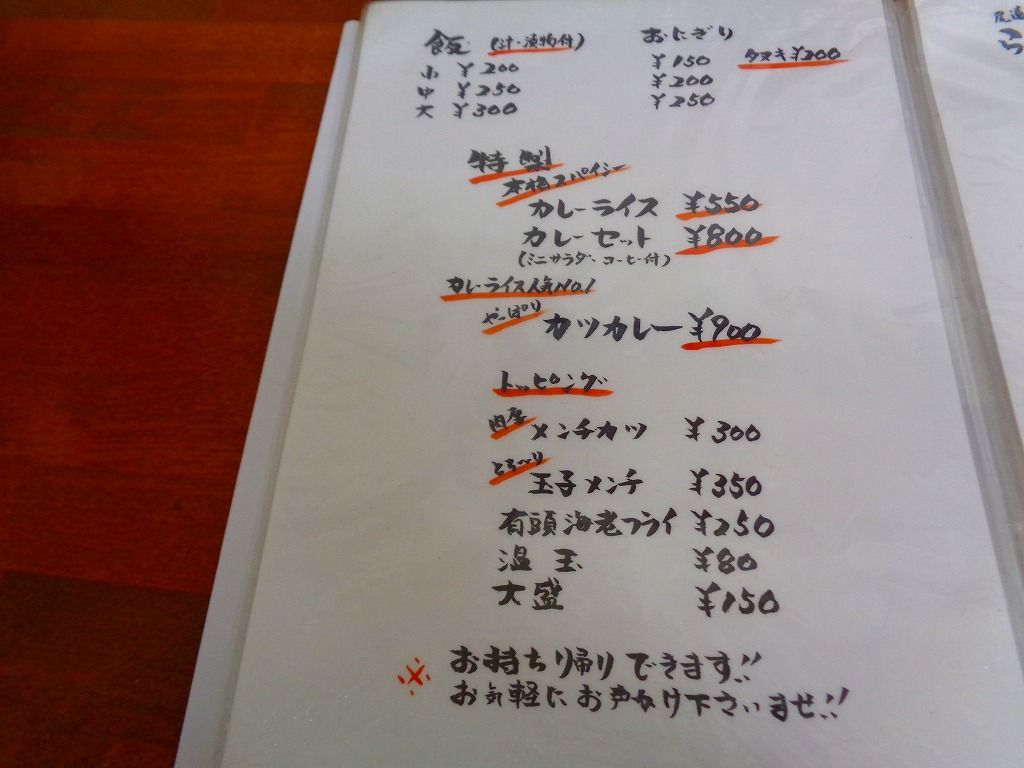 飯 (汁・漬物付)
小 ¥200
中 ¥250
大 ¥300
おにぎり
¥150
¥200
¥250
タヌキ ¥200
特製
本格スパイシー
カレーライス ¥550
カレーセット ¥800
(ミニサラダ・コーヒー付)
カレーライス人気NO.1
やっぱり カツカレー ¥900
トッピング
肉厚 メンチカツ ¥300
とろ〜り 玉子メンチ ¥350
有頭海老フライ ¥250
温玉 ¥80
大盛 ¥150
※ お持ち帰りできます!!
お気軽にお声かけ下さいませ!!
尾道
ら